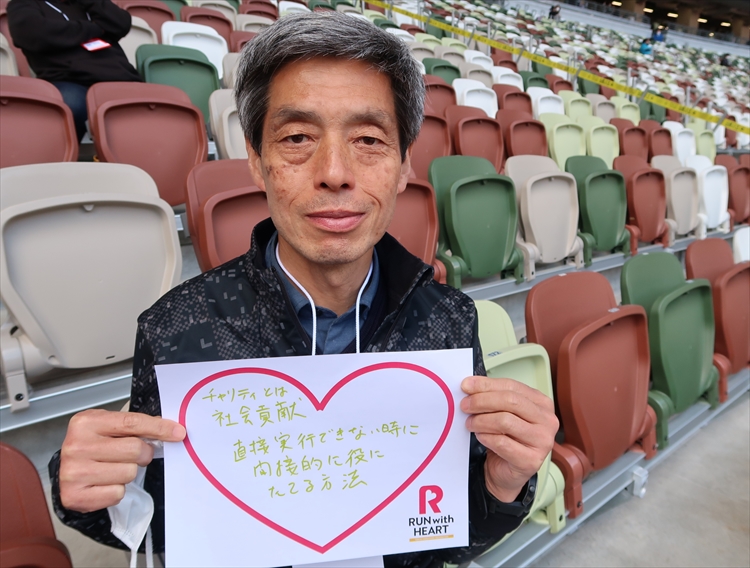 チャリティとは
社会貢献
直接実行できない時に
間接的に役に
たてる方法
R
RUN with
HEART